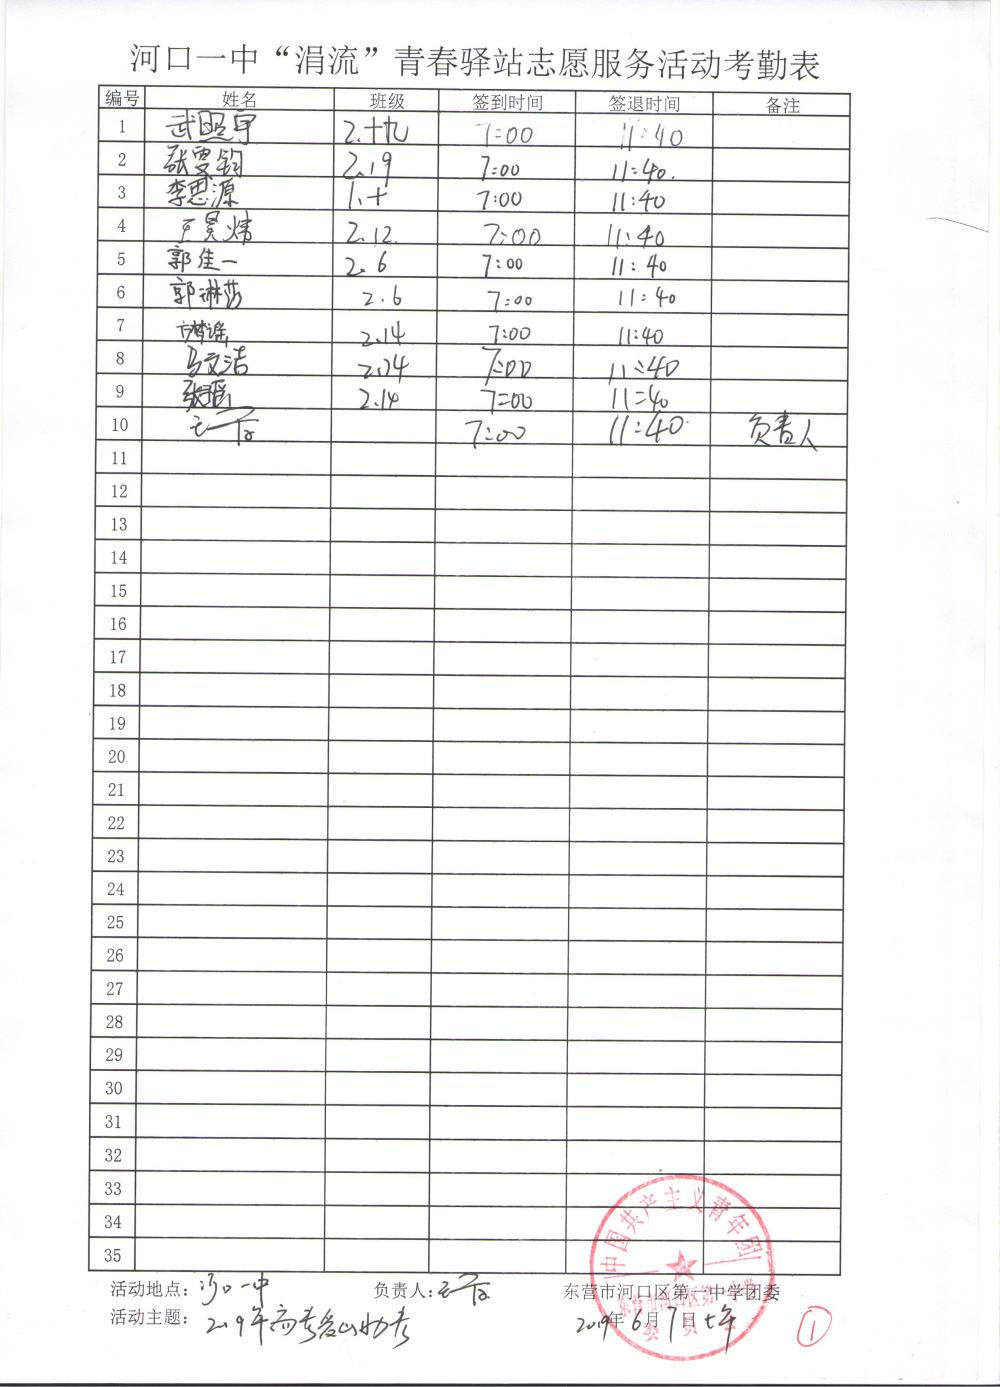 河口一中“涓流”青春驿站志愿服务活动考勤表
编号 姓名 班级 签到时间 签退时间 备注
1 武照宇 2.十九 7:00 11:40
2 张雯钧 2.19 7:00 11:40.
3 李思源 1.十 7:00 11:40
4 王昊炜 2.12. 7:00 11:40
5 郭佳一 2.6 7:00 11:40
6 郭淋莎 2.6 7:00 11:40
7 2.14 7:00 11:40
8 马文洁 2.14 7:00 11:40
9 2.14 7:00 11:40
10 7:00 11:40 负责人
11
12
13
14
15
16
17
18
19
20
21
22
23
24
25
26
27
28
29
30
31
32
33
34
35
中国共产主义青年团
东营市河口区第一中学
委员会
活动地点：河口一中 负责人： 东营市河口区第一中学团委
活动主题：2019年高考爱心助考 2019年6月7日上午
1